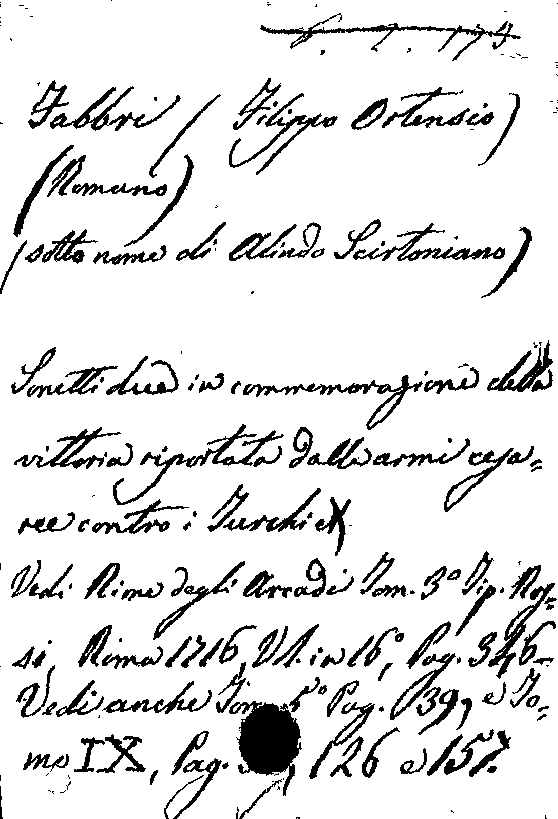 6. 2. 173
Fabbri (Filippo Ortensio)
(Romano)
(sotto nome di Alindo Scirtoniano)
Sonetti due in commemorazione della
vittoria riportata dalle armi cesa=
ree contro i Turchi
Vedi Rime degli Arcadi Tom. 3° Tip. Ros=
si, Roma 1716, Vol. in 16°, Pag. 326-
Vedi anche Tom. 5° Pag. 139, e To=
mo IX, Pag. 126 e 157.